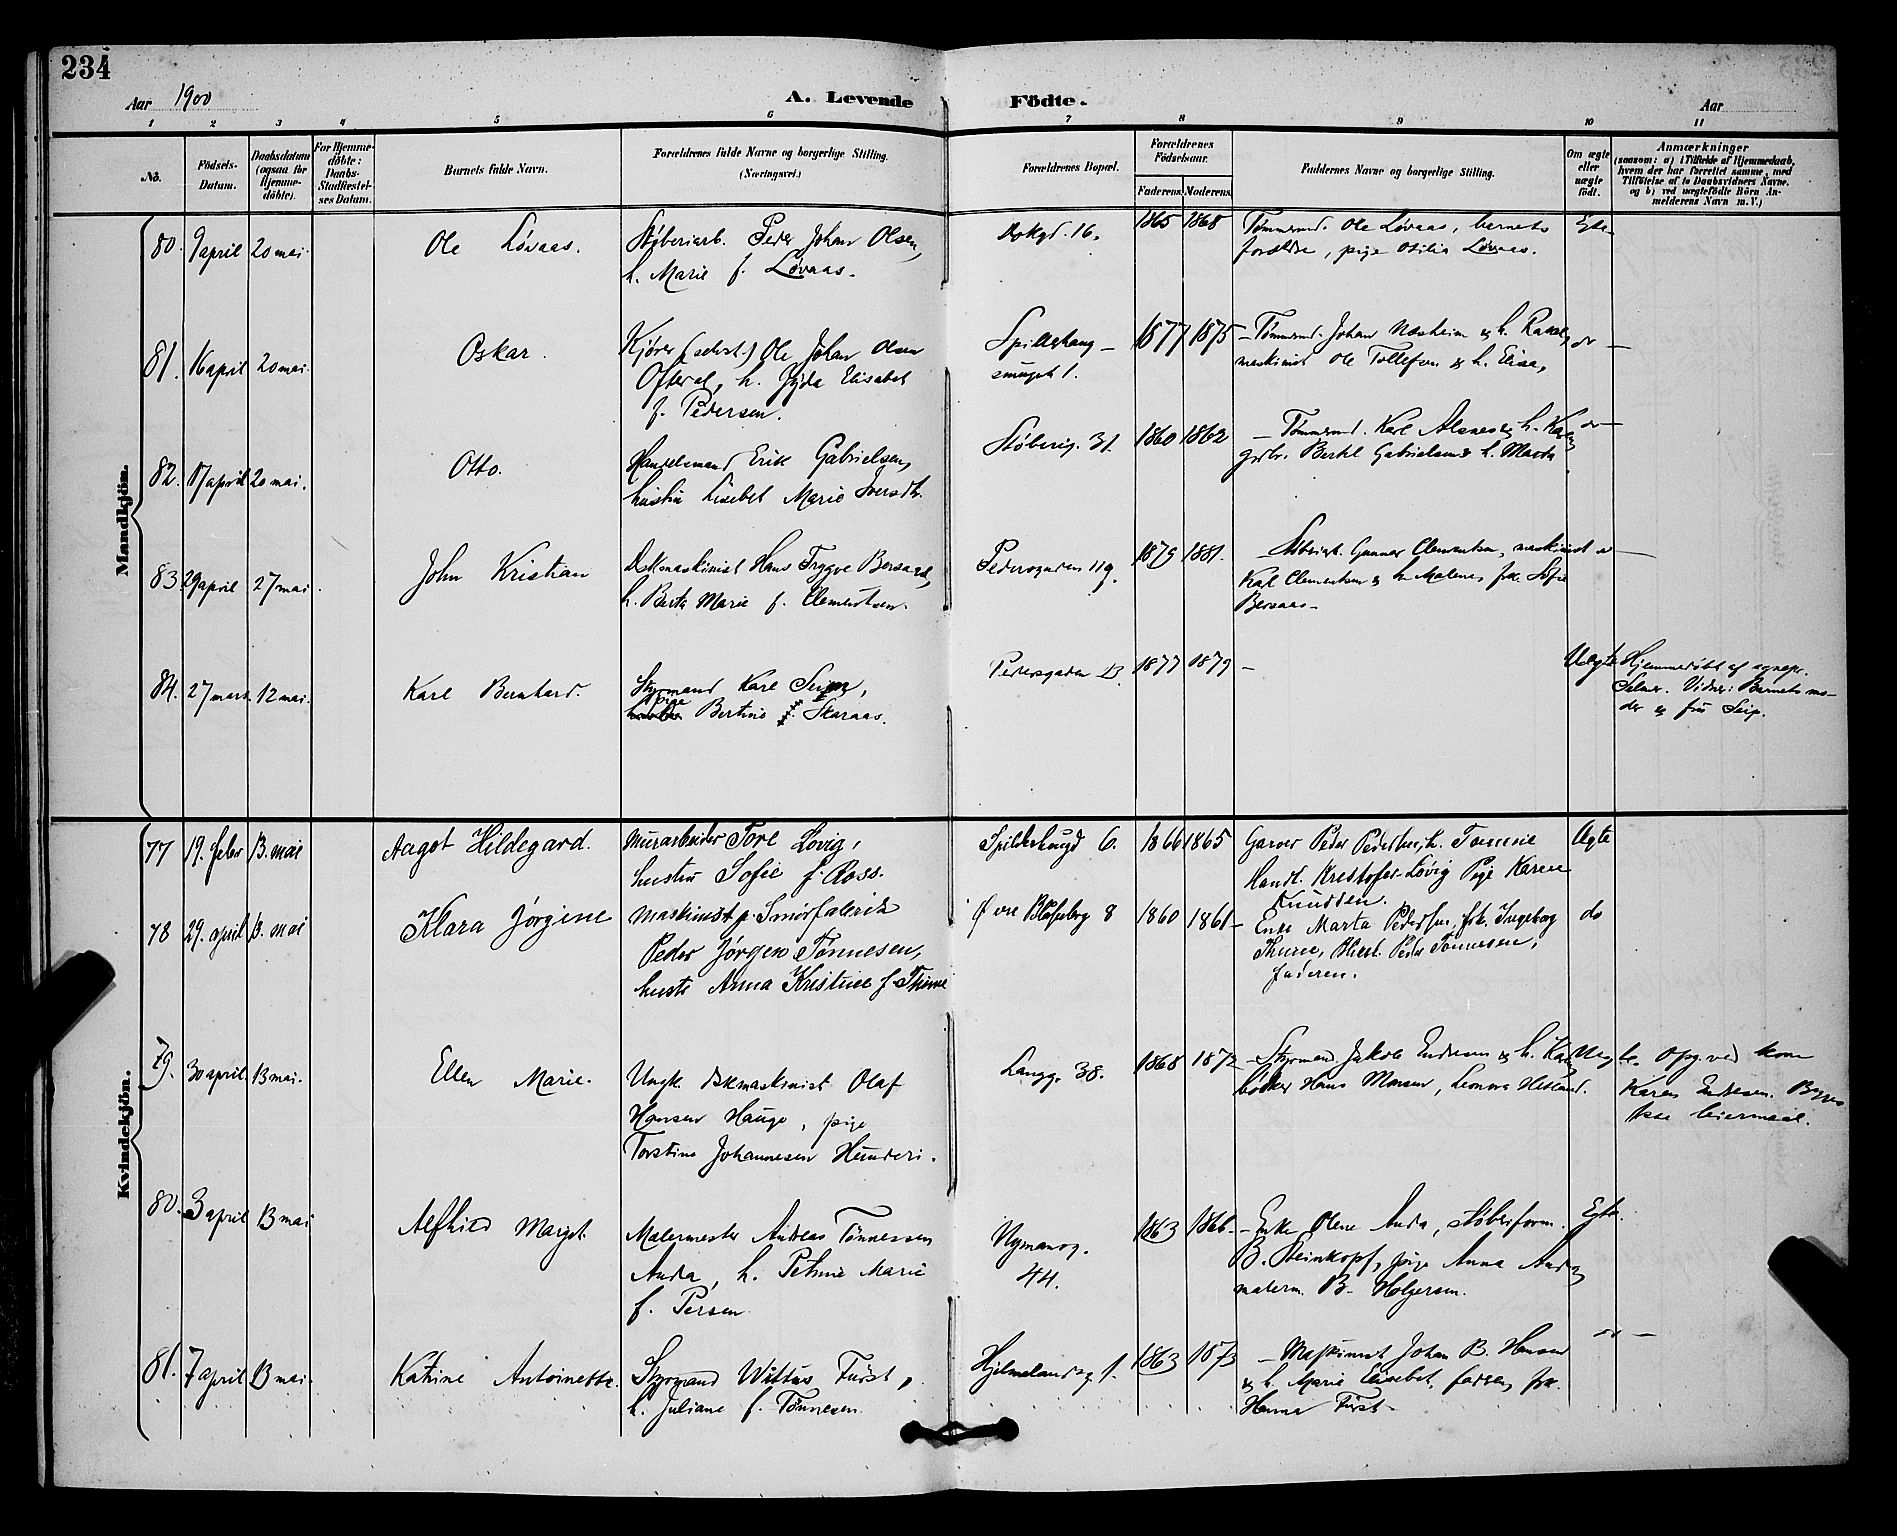 234
Aar 1900
A. Levende Födte.
Aar
1 2 3 4 5 6 7 8 9 10 11
No.
Födsels-
Datum.
Daabsdatum
(ogsaa for
Hjemme-
döbte).
For Hjemme-
döbte:
Daabs-
Stadfæstel-
ses Datum.
Barnets fulde Navn.
Forældrenes fulde Navne og borgerlige Stilling.
(Næringsvei.)
Forældrenes Bopæl.
Forældrenes
Födselsaar.
Faderens. Moderens.
Faddernes Navne og borgerlige Stilling.
Om ægte
eller
uægte
födt.
Anmærkninger
(saasom: a) i Tilfælde af Hjemmedaab,
hvem der har forrettet samme, med
Tilföielse af to Daabsvidners Navne.
og b) ved uægtefödte Börn An-
melderens Navn m. V.)
Mandkjön.
80. 9 april 20 mai. Ole Løvaas.
Støberiarb. Peder Johan Olsen,
h. Marie f. Løvaas.
16. 1865 1868
Tømmermd. Ole Løvaas, barnets
forældre, pige Otilia Løvaas.
Egte
81. 16 april 20 mai. Oskar.
Kjører Ole Johan Olsen
Ofteral, h. Jyda Elisabet
f. Pedersen.
Spilderhaug-
smuget 1.
1877 1875
Tømmermd. Johan Næsheim & h.
maskinist Ole Tollefsen & h. Elisa,
do
82. 17 april 20 mai. Otto.
Handelsmand Erik Gabrielsen,
hustru Lisebet Marie
Støberig. 31. 1860 1862
Tømmermd. Karl & h.
Bertel Gabrielsen & h. Marta
do
83. 29 april 27 mai. John Kristian
Dskmaskinist Hans Trygve Bersaas,
h. Berta Marie f. Clementsen.
Pedersgaden 119. 1879 1881.
Gunnar Clementsen, maskinist
Karl Clementsen & h. Malene, frk. Sofie
Bersaas
84. 27 mars 12 mai. Karl Bernhard.
Styrmand Karl
pige Bertine Skaraas.
Pedersgaden 1877 1879
Uegte
Hjemmedøbt af
Selmer. Vidner: Barnets mo-
der & fru Seip.
Kvindekjön.
77 19. febr 13. mai Aagot Hildegard.
Murarbeider Tore Løvig,
hustru Sofie f. Ross.
Spilderhaugd 6. 1866 1865
Garver Peder Pedersen, h. Tomine
Handl. Kristofer Løvig Pige Karen
Knudsen.
Ægte
78 29. april 13. mai Klara Jørgine
Maskinist p. Smørfabrik
Peder Jørgen Tønnesen,
hustr Anna Kristine f Thime
Øvre Blaasenberg 8 1860 1861
Enke Marta Pedersen, frk. Ingeborg
Thime, Peder Tønnesen,
faderen.
do
79. 30 april 13 mai. Ellen Marie.
Ungk. dskmaskinist Olaf
Hansen Hauge, pige
Torstine Johannesen Hunderi.
Langg. 38. 1868 1872
Styrmand Jakob Endresen & h.
bødker Hans Monsen, Leonora Helland.
Uegte. Opg. ved kone
Karen Endresen.
leiermaal.
80. 3 april 13 mai Alfhild Margit.
Malermester Andreas Tønnessen
Anda, h. Petrine Marie
f. Persen.
Nymansg.
44.
1863 1866
Enke Olene Anda, støberiform.
B. Steinkopf, pige Anna Anda,
malerm. B. Holgersen.
Egte.
81. 7 april 13 mai. Katrine Antoinette.
Styrmand Wittus Fürst,
h. Juliane f. Tønnesen.
Hjelmelandsg 1. 1863 1873
Maskinist Johan B. Hansen
& h. Marie Elisebet, faderen, frk.
Hanna Fürst
do